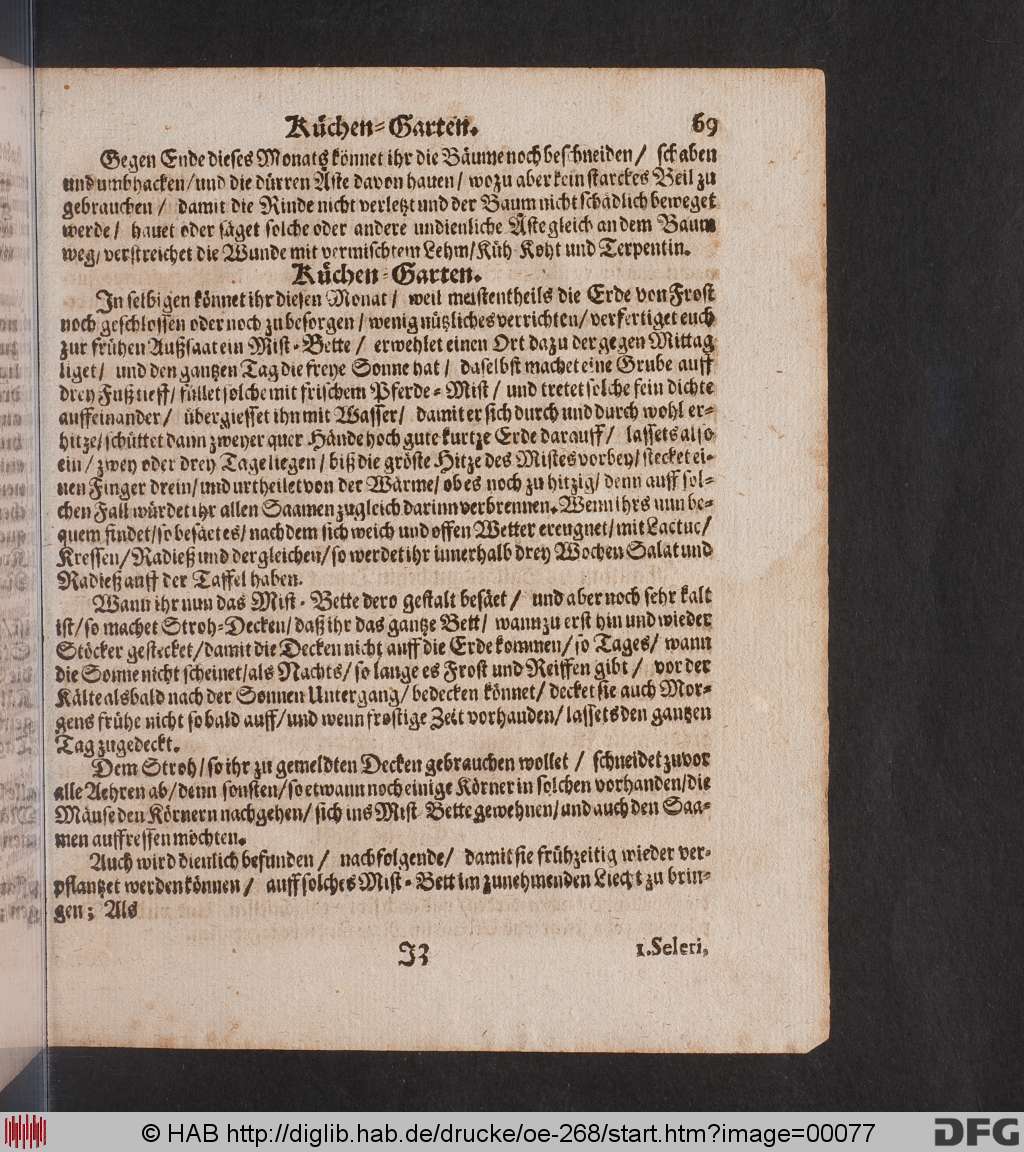 Küchen-Garten. 69
Gegen Ende dieses Monats könnet ihr die Bäume noch beschneiden / schaben
und umbhacken/und die dürren Äste davon hauen/ wozu aber kein starckes Beil zu
gebrauchen / damit die Rinde nicht verletzt und der Baum nicht schädlich beweget
werde/ hauet oder säget solche oder andere undienliche Äste gleich an dem Baum
weg/ verstreichet die Wunde mit vermischtem Lehm/Küh-Koht und Terpentin.
Küchen-Garten.
In selbigen könnet ihr diesen Monat/ weil meistentheils die Erde von Frost
noch geschlossen oder noch zu besorgen/wenig nützliches verrichten/verfertiget euch
zur frühen Außsaat ein Mist-Bette/ erwehlet einen Ort dazu der gegen Mittag
liget/ und den gantzen Tag die freye Sonne hat/ daselbst machet eine Grube auff
drey Fuß tieff/ füllet solche mit frischem Pferde-Mist/ und tretet solche fein dichte
auffeinander/ übergiesset ihn mit Wasser/ damit er sich durch und durch wohl er-
hitze/schüttet dann zweyer quer Hände hoch gute kurtze Erde darauff/ lassets also
ein/zwey oder drey Tage liegen/biß die gröste Hitze des Mistes vorbey/stecket ei-
nen Finger drein/und urtheilet von der Wärme/ob es noch zu hitzig/denn auff sol-
chen Fall würdet ihr allen Saamen zugleich darinn verbrennen. Wenn ihrs nun be-
quem findet/so besäet es/nachdem sich weich und offen Wetter ereugnet/mit Lactuc/
Kressen/Radieß und dergleichen/so werdet ihr innerhalb drey Wochen Salat und
Radieß auff der Taffel haben.
Wann ihr nun das Mist-Bette dero gestalt besäet/ und aber noch sehr kalt
ist/so machet Stroh-Decken/daß ihr das gantze Bett/ wann zu erst hin und wieder
Stöcker gestecket/damit die Decken nicht auff die Erde kommen/so Tages/ wann
die Sonne nicht scheinet/als Nachts/ so lange es Frost und Reiffen gibt/ vor der
Kälte alsbald nach der Sonnen Untergang/bedecken könnet/decket sie auch Mor-
gens frühe nicht so bald auff/und wenn frostige Zeit vorhanden/lassets den gantzen
Tag zugedeckt.
Dem Stroh/so ihr zu gemeldten Decken gebrauchen wollet/ schneidet zuvor
alle Aehren ab/denn sonsten/so etwann noch einige Körner in solchen vorhanden/die
Mäuse den Körnern nachgehen/sich ins Mist-Bette gewehnen/und auch den Saa-
men auffressen möchten.
Auch wird dienlich befunden/ nachfolgende/ damit sie frühzeitig wieder ver-
pflantzet werden können/ auff solches Mist-Bett im zunehmenden Liecht zu brin-
gen; Als
I3 1. Seleri,
© HAB http://diglib.hab.de/drucke/oe-268/start.htm?image=00077
DFG